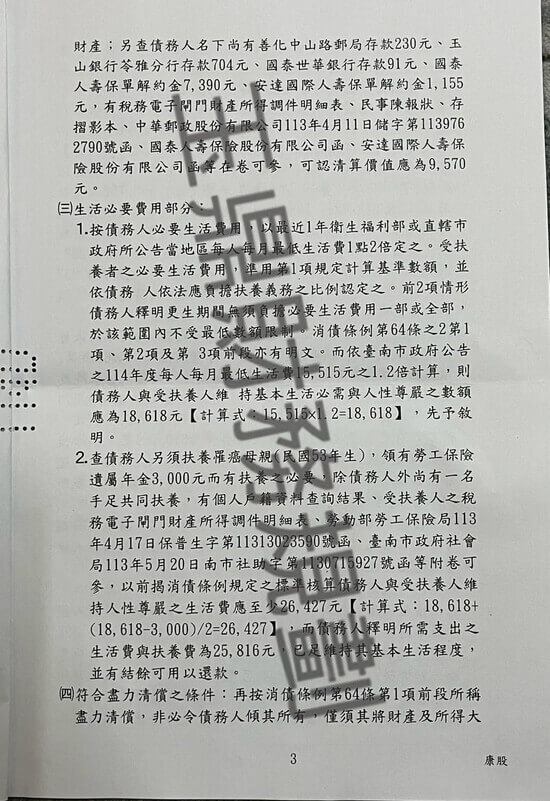 財產；另查債務人名下尚有善化中山路郵局存款230元、玉
山銀行苓雅分行存款704元、國泰世華銀行存款91元、國泰
人壽保單解約金7,390元、安達國際人壽保單解約金1,155
元，有稅務電子閘門財產所得調件明細表、民事陳報狀、存
摺影本、中華郵政股份有限公司113年4月11日儲字第113976
2790號函、國泰人壽保險股份有限公司函、安達國際人壽保
險股份有限公司函等在卷可參，可認清算價值應為9,570
元。
㈢生活必要費用部分：
1.按債務人必要生活費用，以最近1年衛生福利部或直轄市
政府所公告當地區每人每月最低生活費1點2倍定之。受扶
養者之必要生活費用，準用第1項規定計算基準數額，並
依債務 人依法應負擔扶養義務之比例認定之。前2項情形
債務人釋明更生期間無須負擔必要生活費用一部或全部，
於該範圍內不受最低數額限制。消債條例第64條之2第1
項、第2項及第 3項前段亦有明文。而依臺南市政府公告
之114年度每人每月最低生活費15,515元之1.2倍計算，則
債務人與受扶養人維 持基本生活必需與人性尊嚴之數額
應為18,618元【計算式：15,515x1.2=18,618】，先予敘
明。
2.查債務人另須扶養罹癌母親(民國53年生)，領有勞工保險
遺屬年金3,000元而有扶養之必要，除債務人外尚有一名
手足共同扶養，有個人戶籍資料查詢結果、受扶養人之稅
務電子閘門財產所得調件明細表、勞動部勞工保險局113
年4月17日保普生字第11313023590號函、臺南市政府社會
局113年5月20日南市社助字第1130715927號函等附卷可
參，以前揭消債條例規定之標準核算債務人與受扶養人維
持人性尊嚴之生活費應至少26,427元【計算式：18,618+
(18,618-3,000)/2=26,427】，而債務人釋明所需支出之
生活費與扶養費為25,816元，已足維持其基本生活程度，
並有結餘可用以還款。
㈣符合盡力清償之條件：再按消債條例第64條第1項前段所稱
盡力清償，非必令債務人傾其所有，僅須其將財產及所得大
3
康股
玉鼎財務規劃